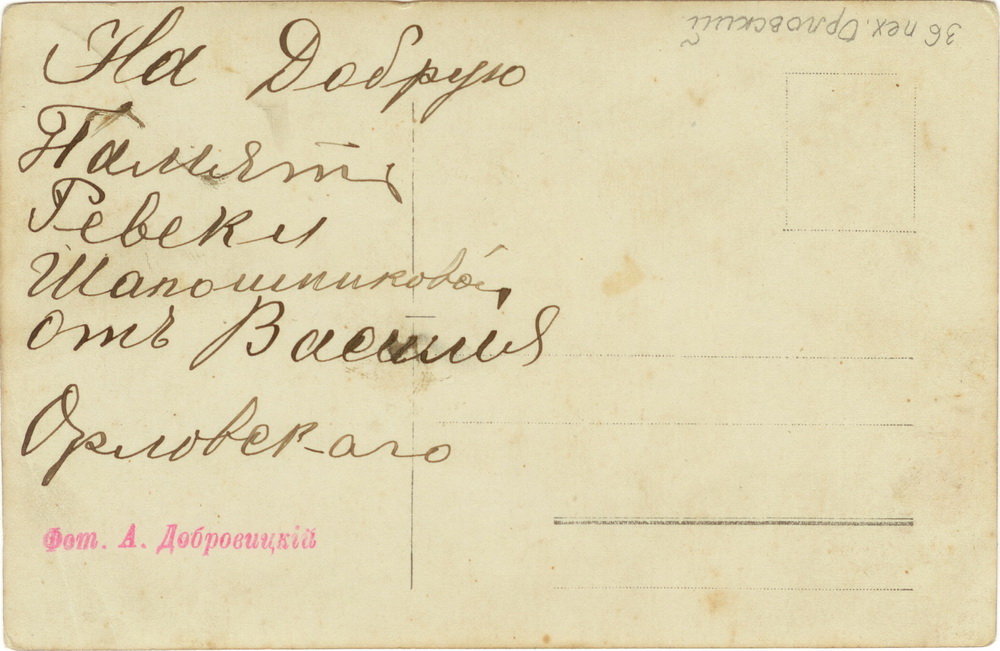 На Добрую
Память
Ревеки
Шапошниковой
отъ Василия
Орловскаго
Фот. А. Добровицкій
36 пех. Орловский